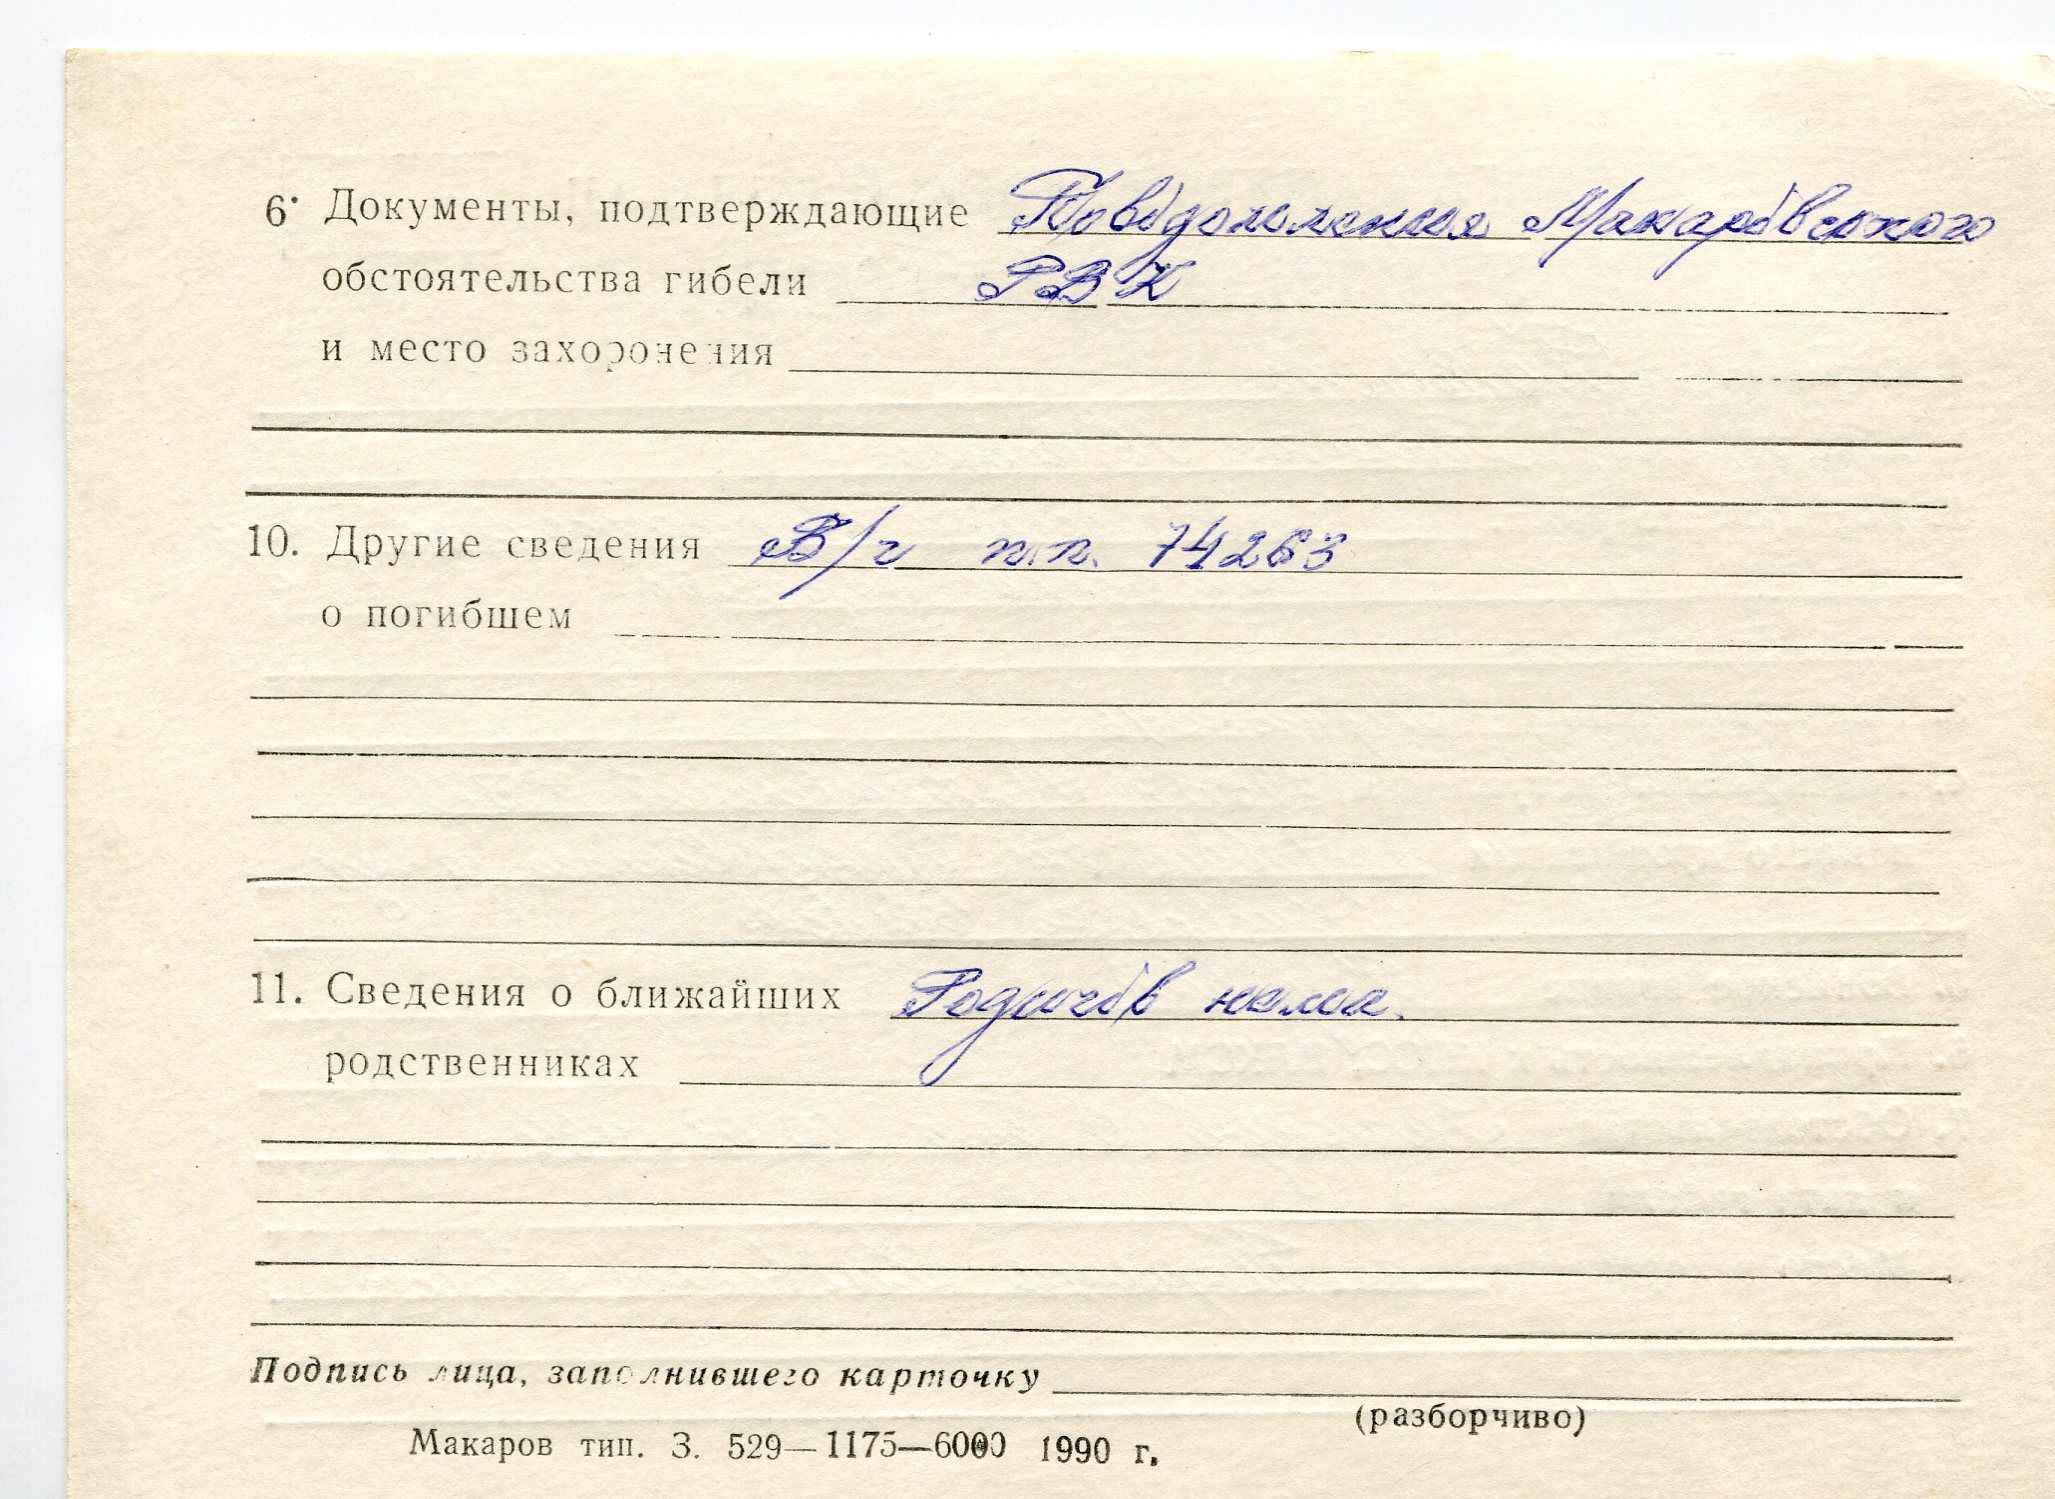 6. Документы, подтверждающие Повідомлення Макарівського
обстоятельства гибели РВК
и место захоронения
10. Другие сведения В/ч п.п. 74263
о погибшем
11. Сведения о ближайших Родичів нема.
родственниках
Подпись лица, заполнившего карточку
(разборчиво)
Макаров тип. З. 529—1175—6000 1990 г.